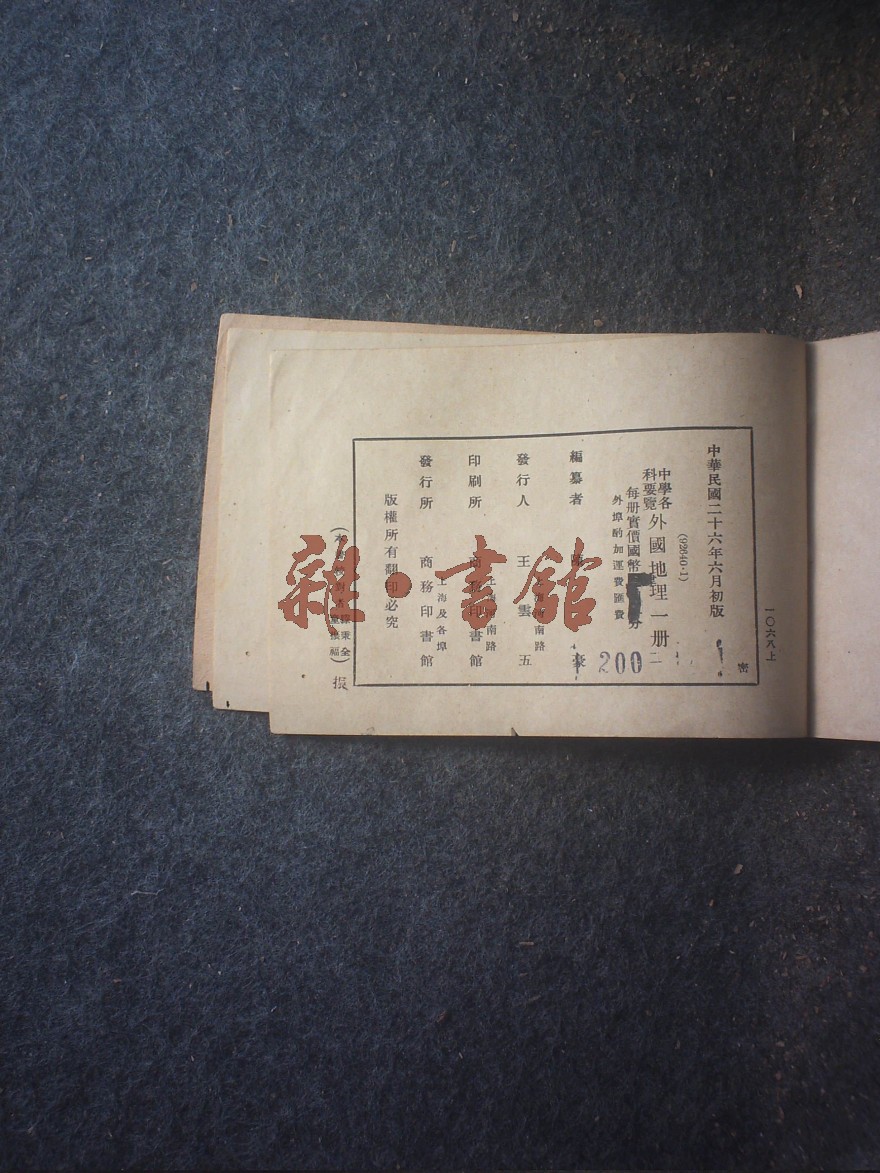 一〇六八上
中華民國二十六年六月初版
密
(92640·1)
中學各科要覽 外國地理一册
每册實價國幣 分
外埠酌加運費匯費
200
編纂者 陳 豪
發行人 王雲五
上海河南路
印刷所 商務印書館
上海河南路
發行所 商務印書館
上海及各埠
版權所有翻印必究
振
雜·書館